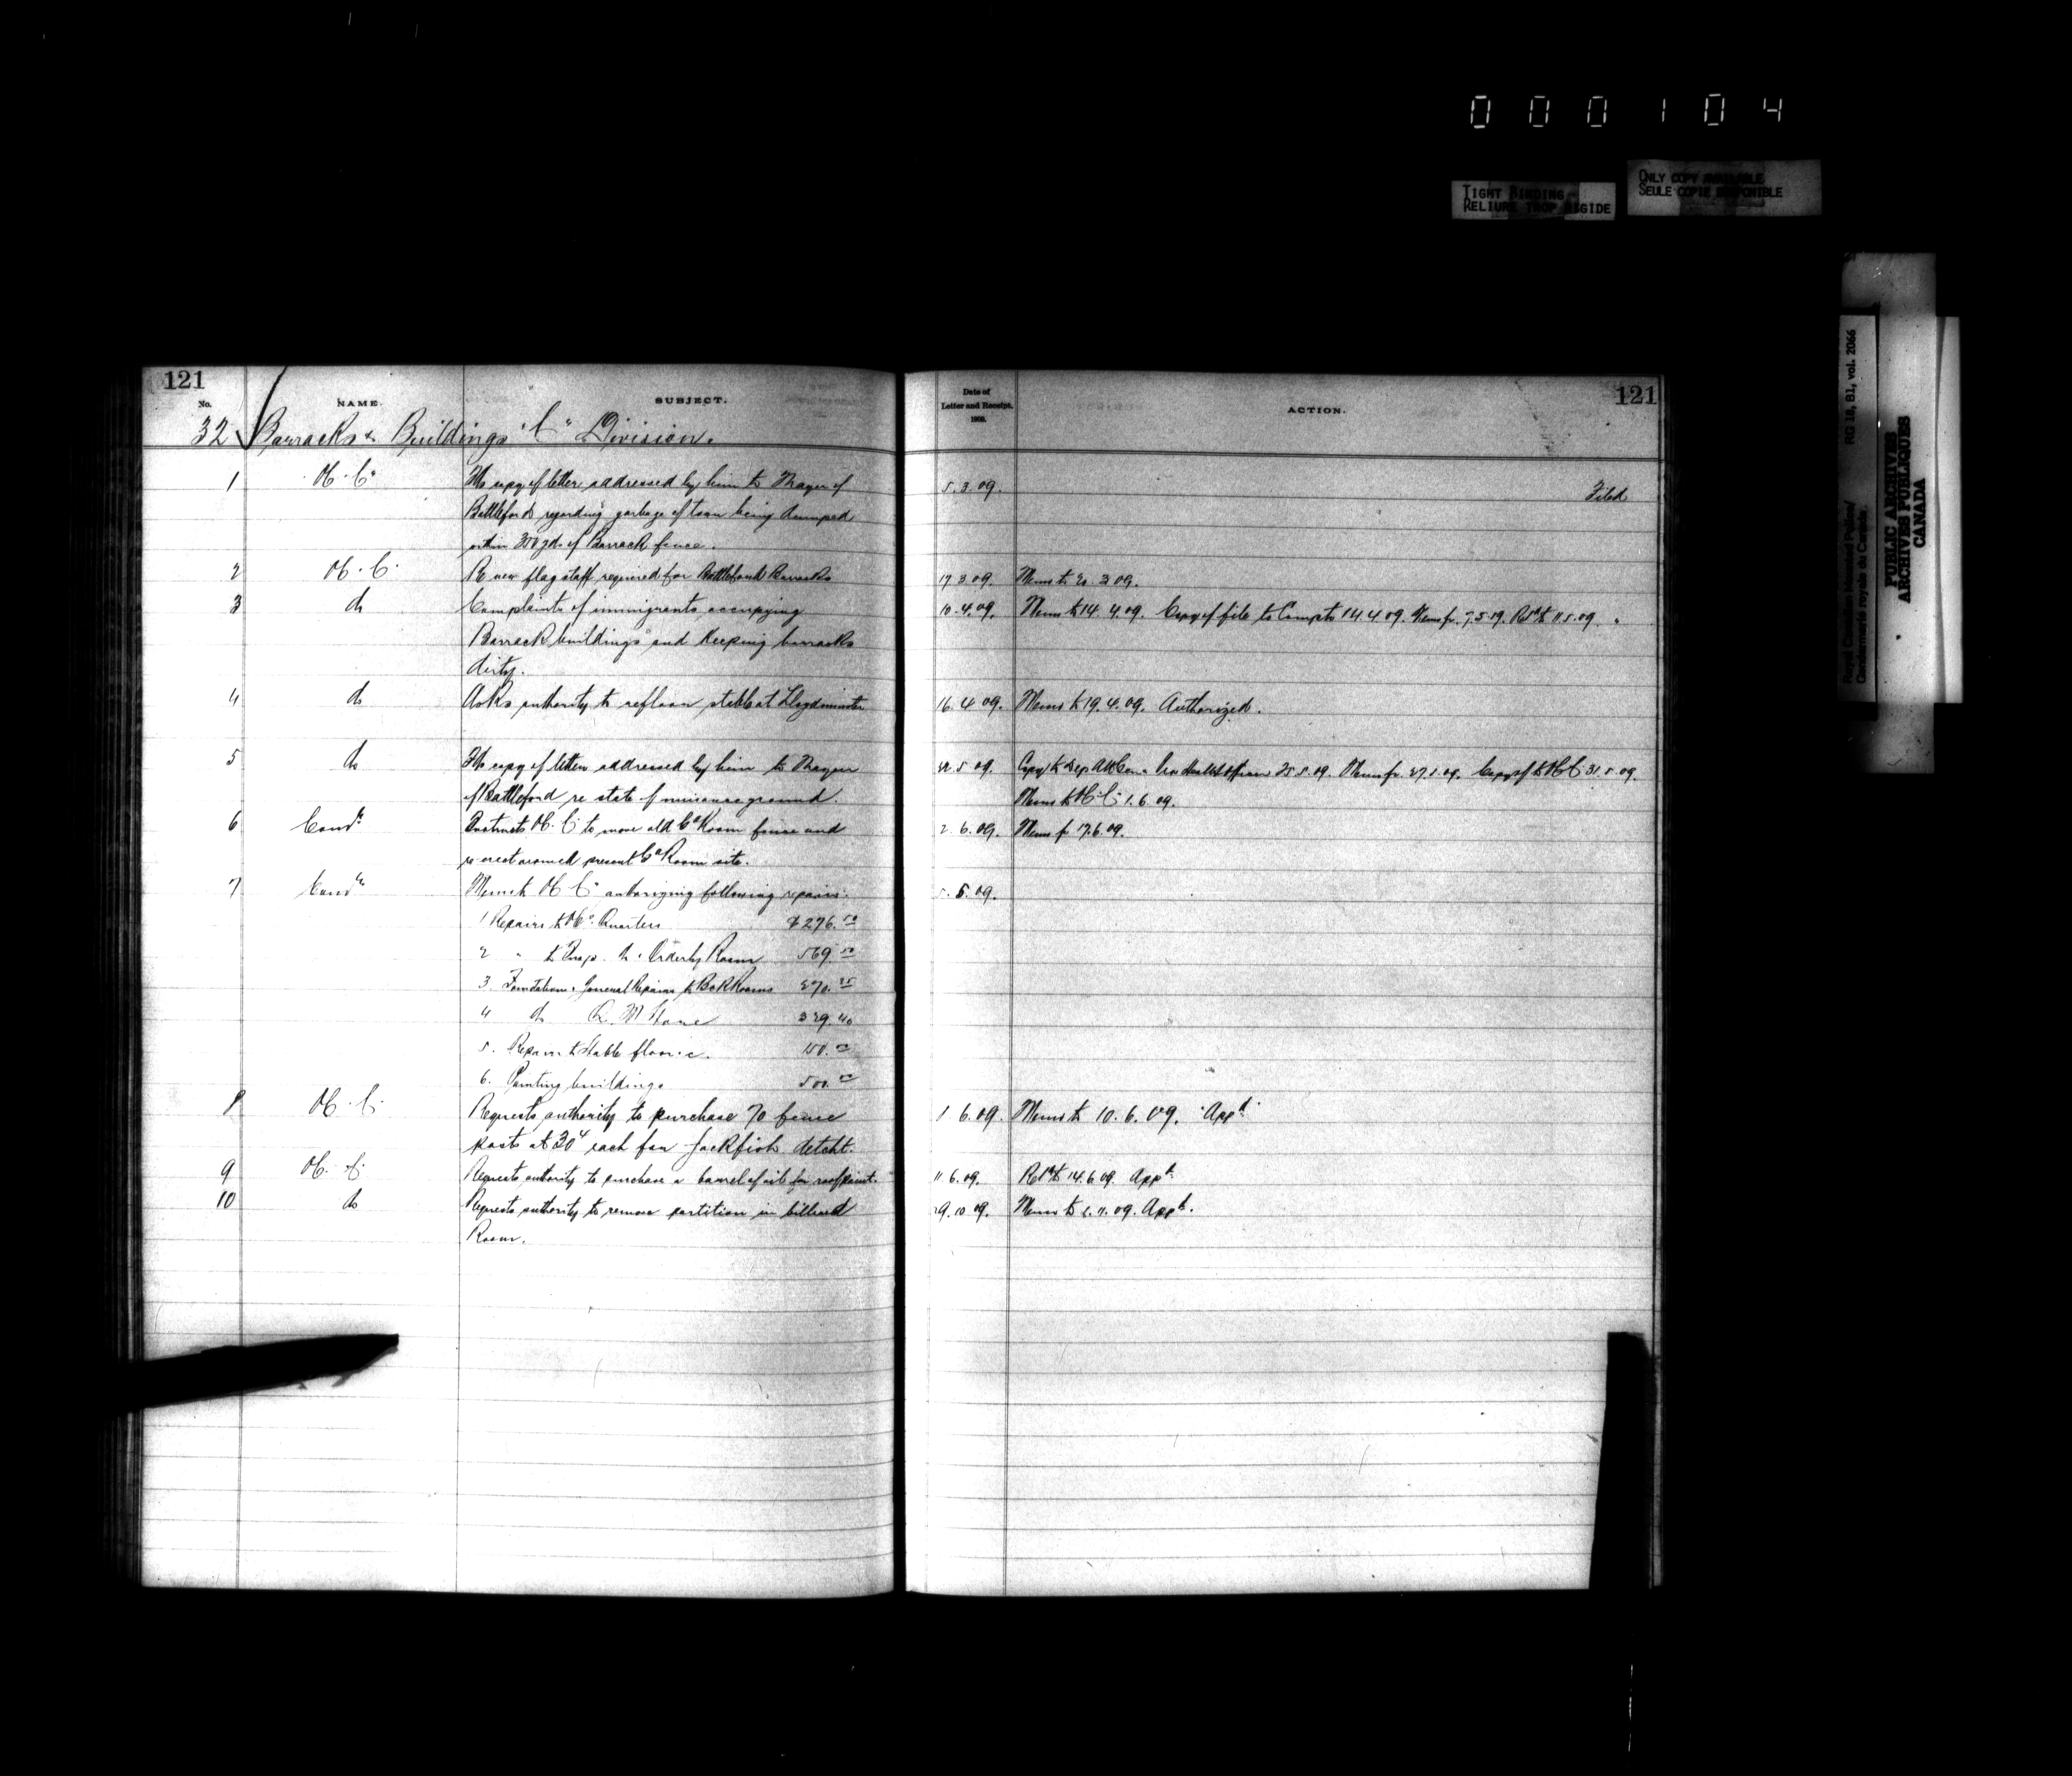 000104
TIGHT BINDING
RELIURE TROP RIGIDE
ONLY COPY AVAILABLE
SEULE COPIE DISPONIBLE
Royal Canadian Mounted Police/ RG 18, B1, vol. 2066
Gendarmerie royale du Canada.
PUBLIC ARCHIVES
ARCHIVES PUBLIQUES
CANADA
121
No. NAME. SUBJECT.
32 Barracks & Buildings "C" Division.
1 O.C. "C" copy of letter addressed by him to Mayor of
Battleford regarding garbage of town being dumped
within 300 yds of Barrack fence.
2 O.C. "C" Re new flag staff required for Battleford Barracks
3 do Complaints of immigrants occupying
Barrack buildings and keeping barracks
dirty.
4 do Asks authority to refloor stable at Lloydminster
5 do copy of letter addressed by him to Mayor
of Battleford re state of nuisance ground.
6 Comdr Instructs O.C. "C" to move old Gd Room fence and
re erect around present Gd Room site.
7 Comdr Memo to O.C. "C" authorizing following repairs:
1 Repairs to O.C's Quarters $276.50
2 " to Insp. Orderly Room 569.50
3. Foundation & General Repairs to Bck Rooms 270.25
4 do Q. M. Store 329.40
5. Repairs to Stable floor 150.00
6. Painting buildings 500.00
8 O.C. "C" Requests authority to purchase 70 fence
posts at 30¢ each for Jackfish detcht.
9 O.C. "C" Requests authority to purchase a barrel of oil for roof paint.
10 do Requests authority to remove partition in billiard
Room.
121
Date of
Letter and Receipt.
1909.
ACTION.
5.3.09. Filed
17.3.09. Memo to 20.3.09.
10.4.09. Memo to 14.4.09. Copy of file to Compt. 14.4.09. Memo fr. 7.5.09. Rel'd to 11.5.09. "
16.4.09. Memo to 19.4.09. Authorized.
22.5.09. Copy to Dep. Att. Gen. 25.5.09. Memo fr. 27.5.09. Copy of to O.C. "C" 31.5.09.
Memo to O.C. "C" 1.6.09.
2.6.09. Memo fr 17.6.09.
5.09.
1.6.09. Memo to 10.6.09. "App'd"
11.6.09. Rel'd to 14.6.09. App'd.
29.10.09. Memo to 2.11.09. App'd.